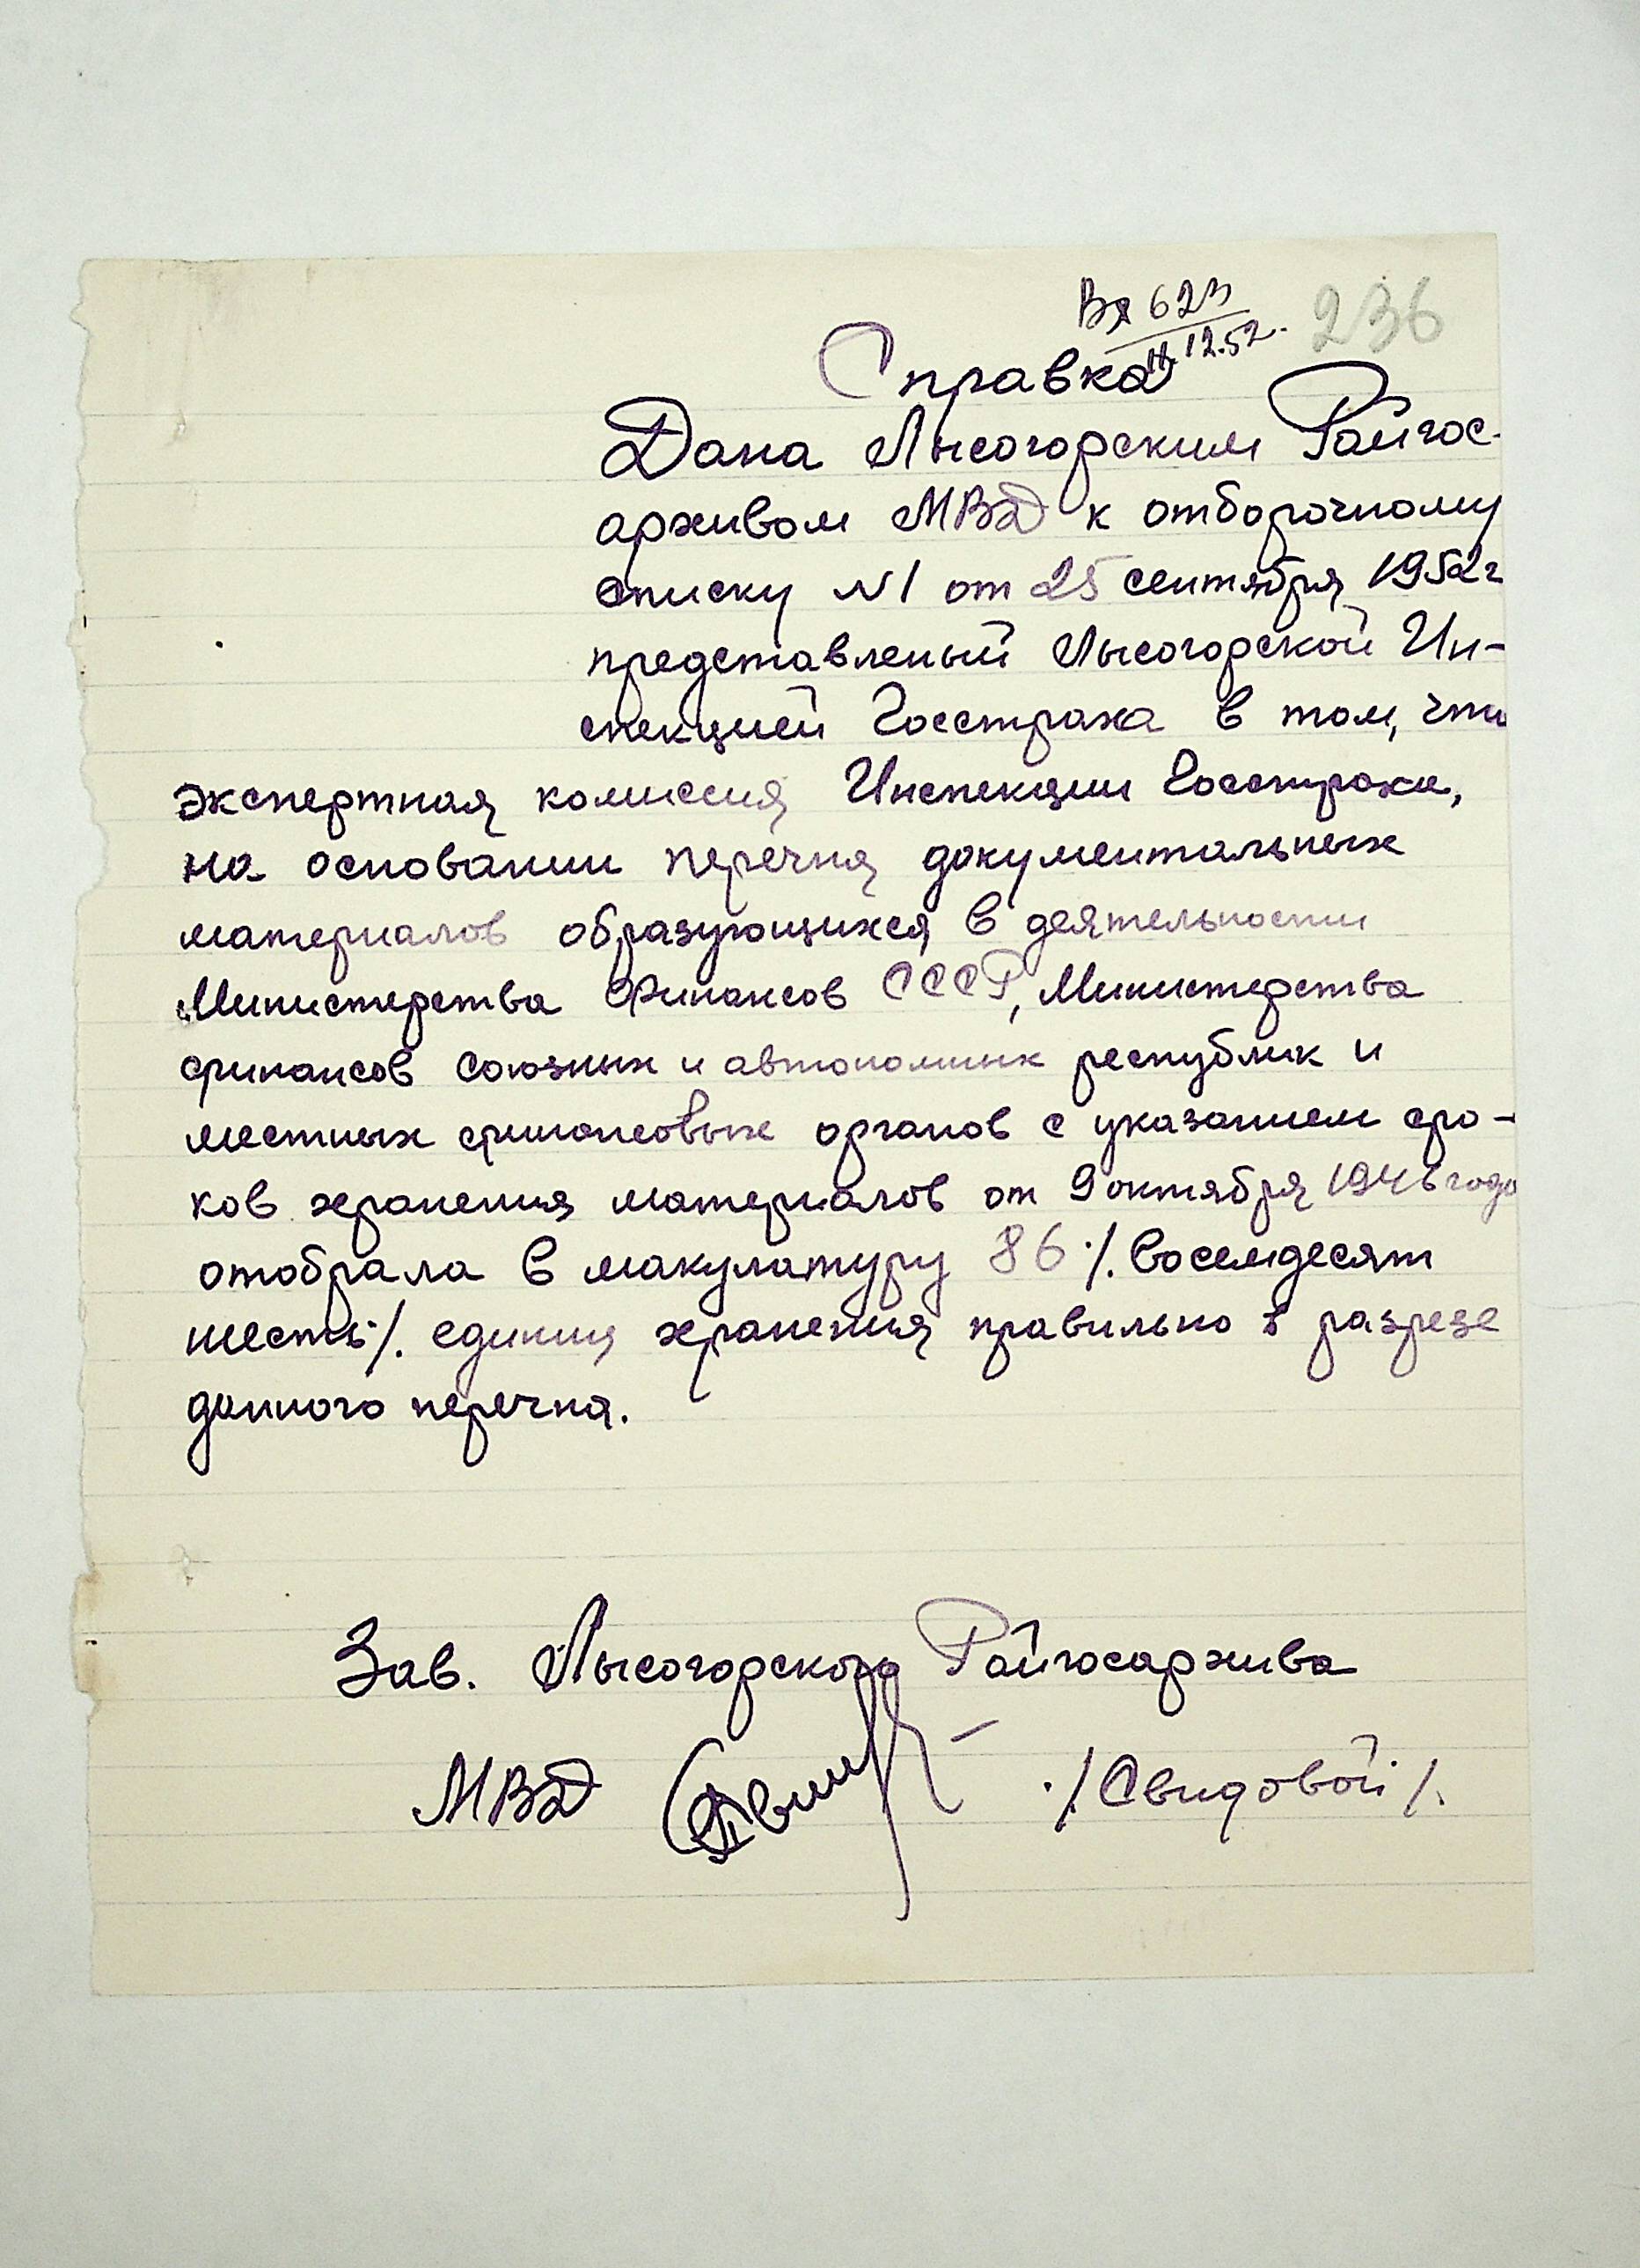 Вх 623
11.12.52.
236
Справка
Дана Лысогорским Райгос-
архивом МВД к отборочному
списку N1 от 25 сентября 1952г
представленый Лысогорской Ин-
спекцией Госстраха в том, что
экспертная комиссия Инспекции Госстраха,
на основании перечня документальных
материалов образующихся в деятельности
Министерства Финансов СССР, Министерства
финансов союзных и автономных республик и
местных финансовых органов с указанием сро-
ков хранения материалов от 9 октября 1946 года
отобрала в макулатуру 86 ·/. восемдесят
шесть ·/. единиц хранения правильно в разрезе
данного перечня.
Зав. Лысогорского Райгосархива
МВД ·/Свидовой/.